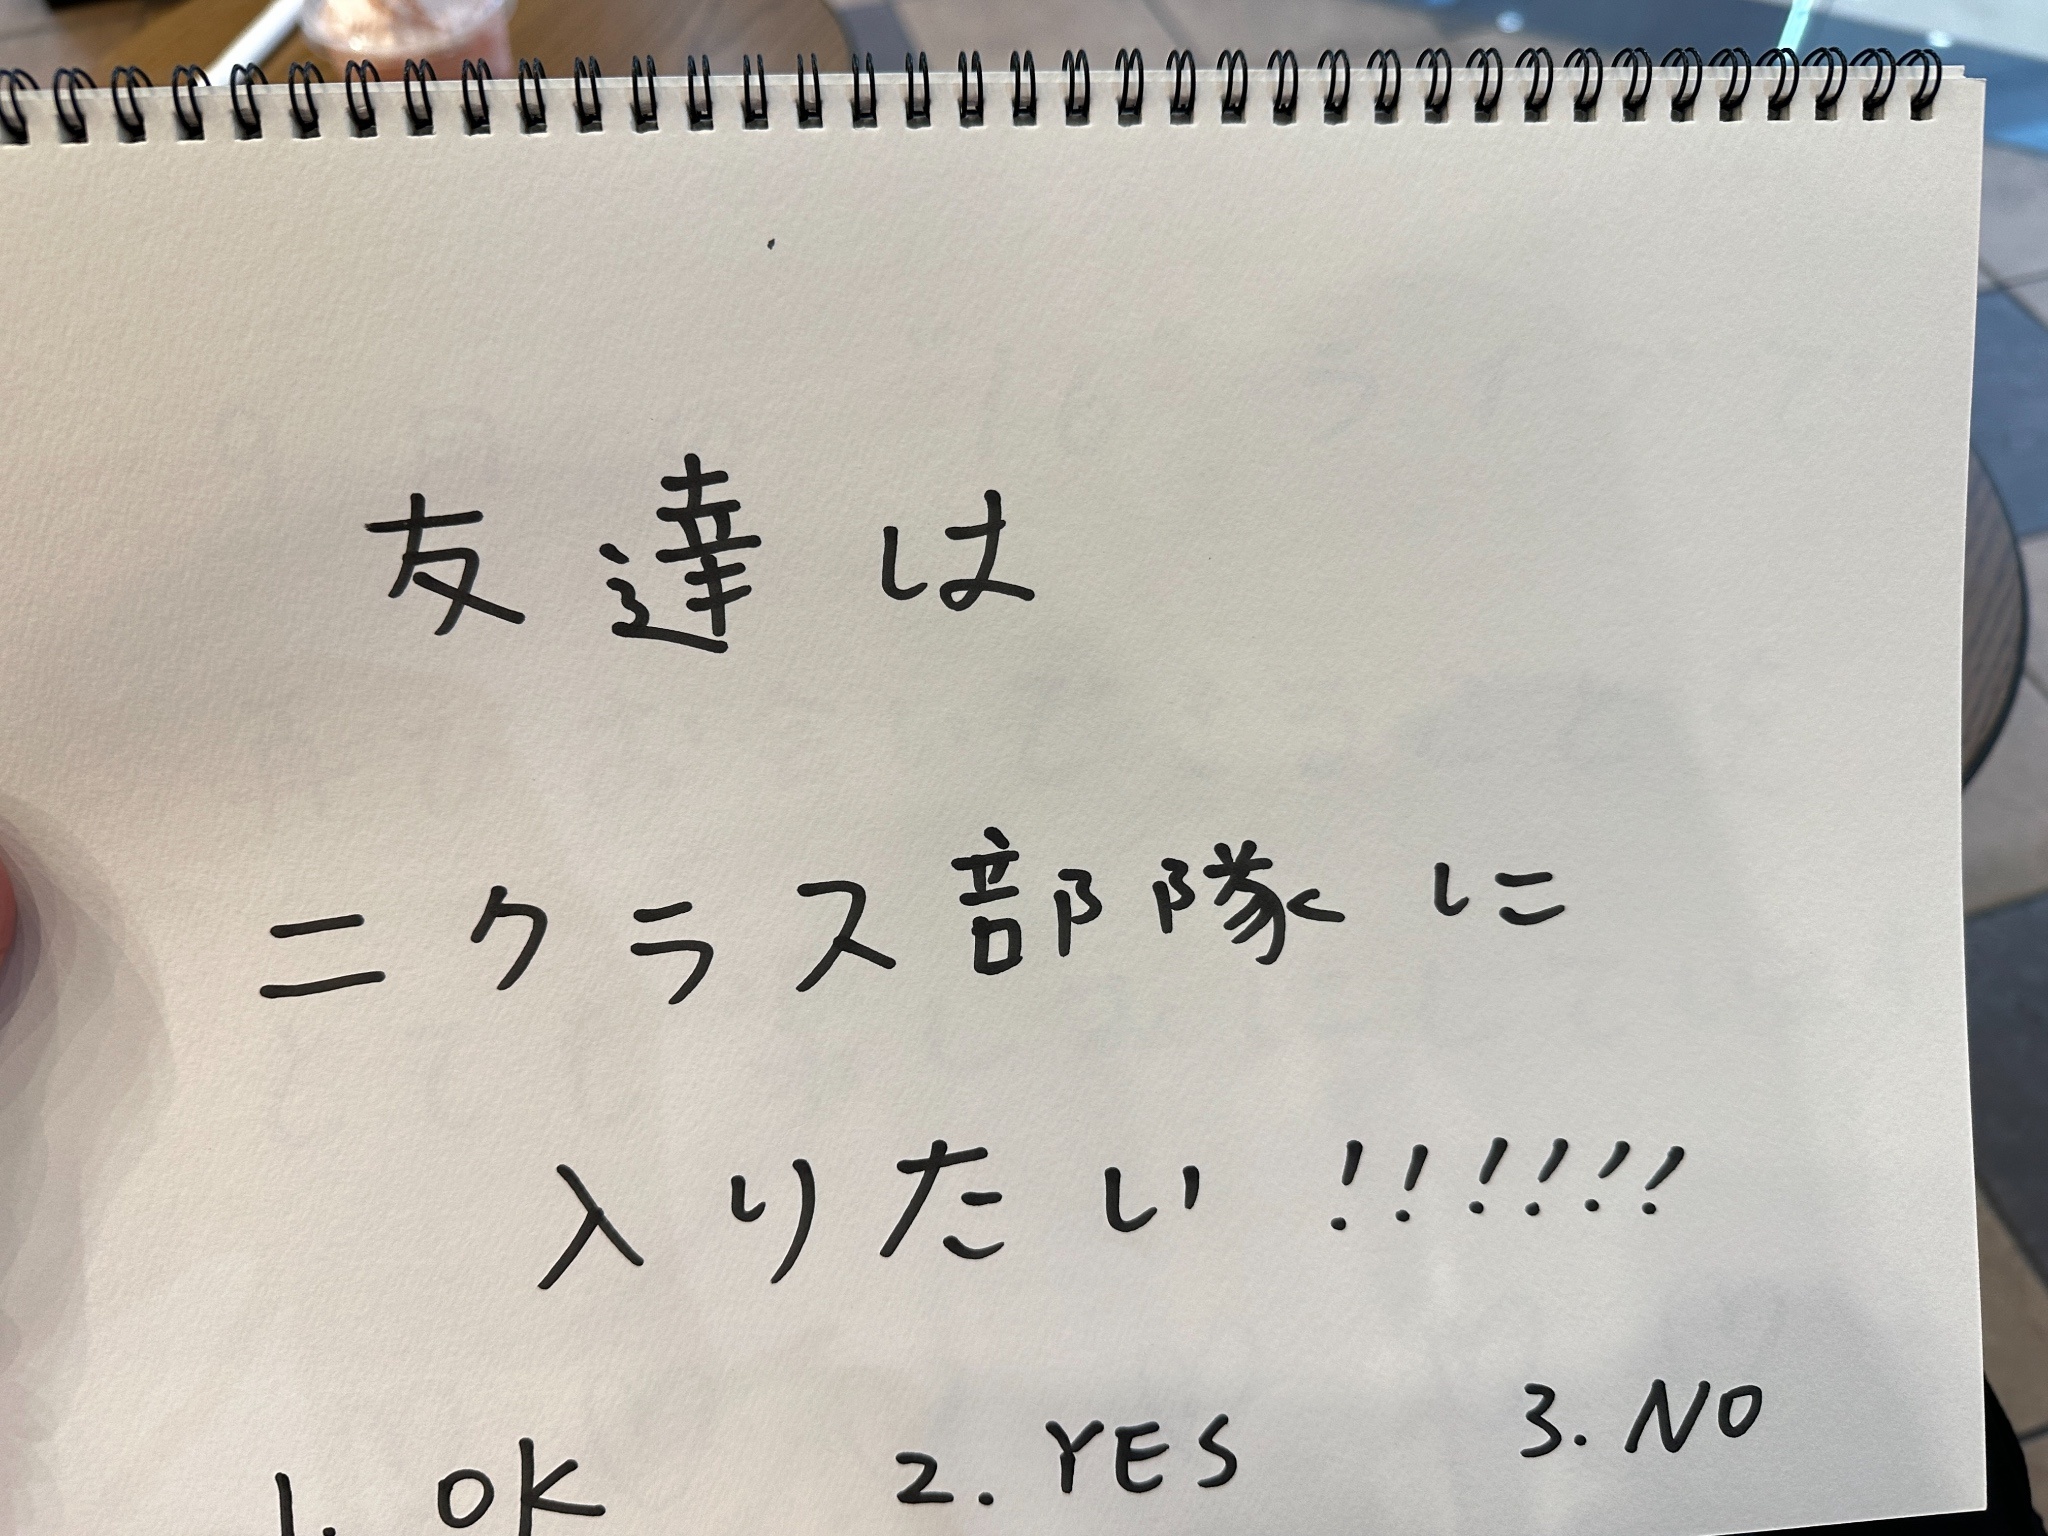 友達は
ニクラス部隊に
入りたい!!!!!!
1. OK 2. YES 3. NO